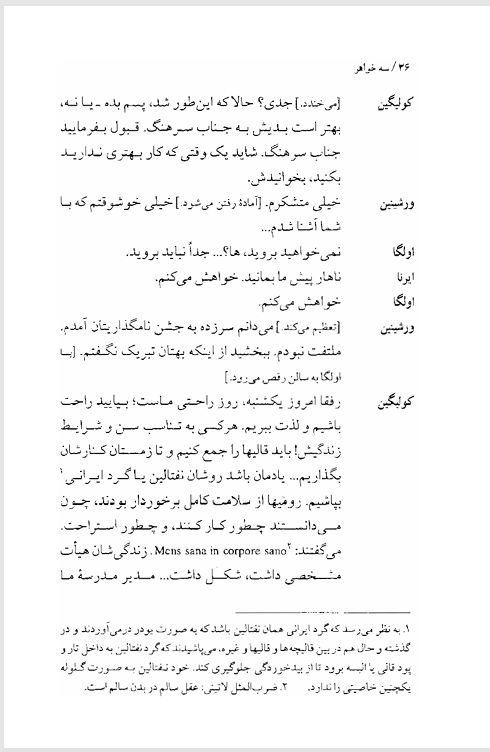 ۲۶ / سه خواهر
کولیگین [می‌خندد.] جدی؟ حالا که این‌طور شد، پسم بده ـ یا نه،
بهتر است بدیش به جناب سرهنگ. قبول بفرمایید
جناب سرهنگ. شاید یک وقتی که کار بهتری ندارید
بکنید، بخوانیدش.
ورشینین خیلی متشکرم. [آمادهٔ رفتن می‌شود.] خیلی خوشوقتم که با
شما آشنا شدم...
اولگا نمی‌خواهید بروید، ها؟... جداً نباید بروید.
ایرنا ناهار پیش ما بمانید. خواهش می‌کنم.
اولگا خواهش می‌کنم.
ورشینین [تعظیم می‌کند.] می‌دانم سرزده به جشن نامگذاریتان آمدم.
ملتفت نبودم. ببخشید از اینکه بهتان تبریک نگفتم. [با
اولگا به سالن رقص می‌رود.]
کولیگین رفقا امروز یکشنبه، روز راحتی ماست؛ بیایید راحت
باشیم و لذت ببریم. هرکسی به تناسب سن و شرایط
زندگیش! باید قالیها را جمع کنیم و تا زمستان کنارشان
بگذاریم... یادمان باشد روشان نفتالین یا گرد ایرانی۱
بپاشیم. رومیها از سلامت کامل برخوردار بودند، چون
می‌دانستند چطور کار کنند، و چطور استراحت.
می‌گفتند: Mens sana in corpore sano۲. زندگی‌شان هیأت
مشخصی داشت، شکل داشت... مدیر مدرسهٔ ما
۱. به نظر می‌رسد که گرد ایرانی همان نفتالین باشد که به صورت پودر درمی‌آوردند و در
گذشته و حال هم در بین قالیچه‌ها و قالیها و غیره، می‌پاشیدند که گرد نفتالین به داخل تار و
پود قالی یا البسه برود تا از بیدخوردگی جلوگیری کند. خود نفتالین به صورت گلوله
یکچنین خاصیتی را ندارد. ۲. ضرب‌المثل لاتینی: عقل سالم در بدن سالم است.